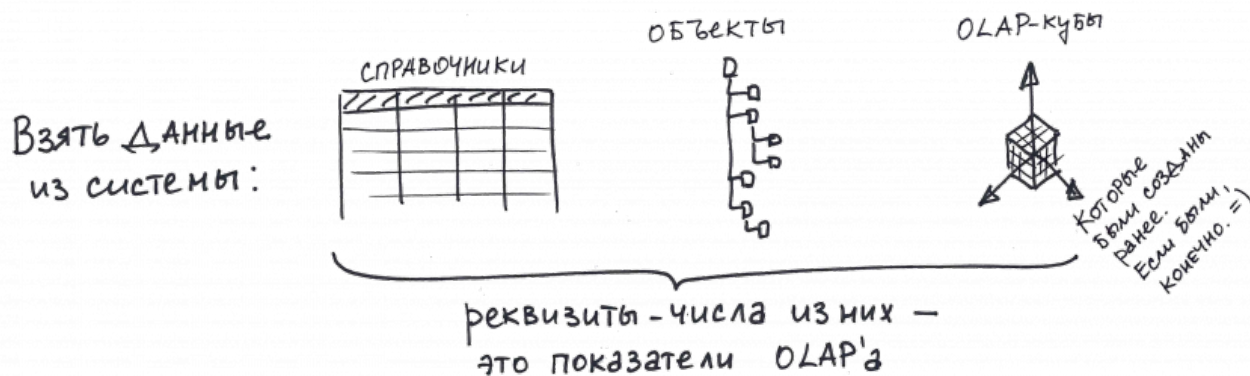 Взять данные
из системы:
СПРАВОЧНИКИ
ОБЪЕКТЫ
OLAP-КУБЫ
Которые
были созданы
ранее.
Если были,
конечно. =)
реквизиты - числа из них —
это показатели OLAP'а